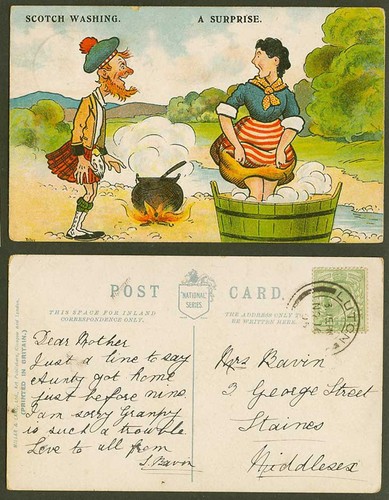 SCOTCH WASHING. A SURPRISE.
POST CARD.
"NATIONAL" SERIES.
THIS SPACE FOR INLAND CORRESPONDENCE ONLY.
THE ADDRESS ONLY TO BE WRITTEN HERE.
LUTON
Dear Mother
Just a line to say
Aunty got home
just before nine.
I am sorry Granpy
is such a trouble
Love to all from
J. Bavin
Mrs Bavin
3 George Street
Staines
Middlesex
(PRINTED IN BRITAIN.)